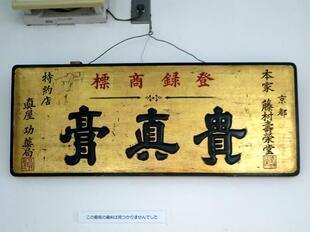 登録商標
京都
本家 藤村壽榮堂
貴真膏
特約店
真屋 功薬局
この看板の資料は見つかりませんでした